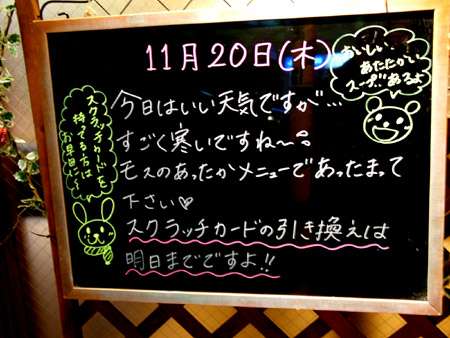 11月20日(木)
おいしい
あたたかい
スープ、あるよ
今日はいい天気ですが…
すごく寒いですね〜。
モスのあったかメニューであったまって
下さい♡
スクラッチカードの引き換えは
明日までですよ!!
スクラッチカードを
持ってる方は
お早目に〜